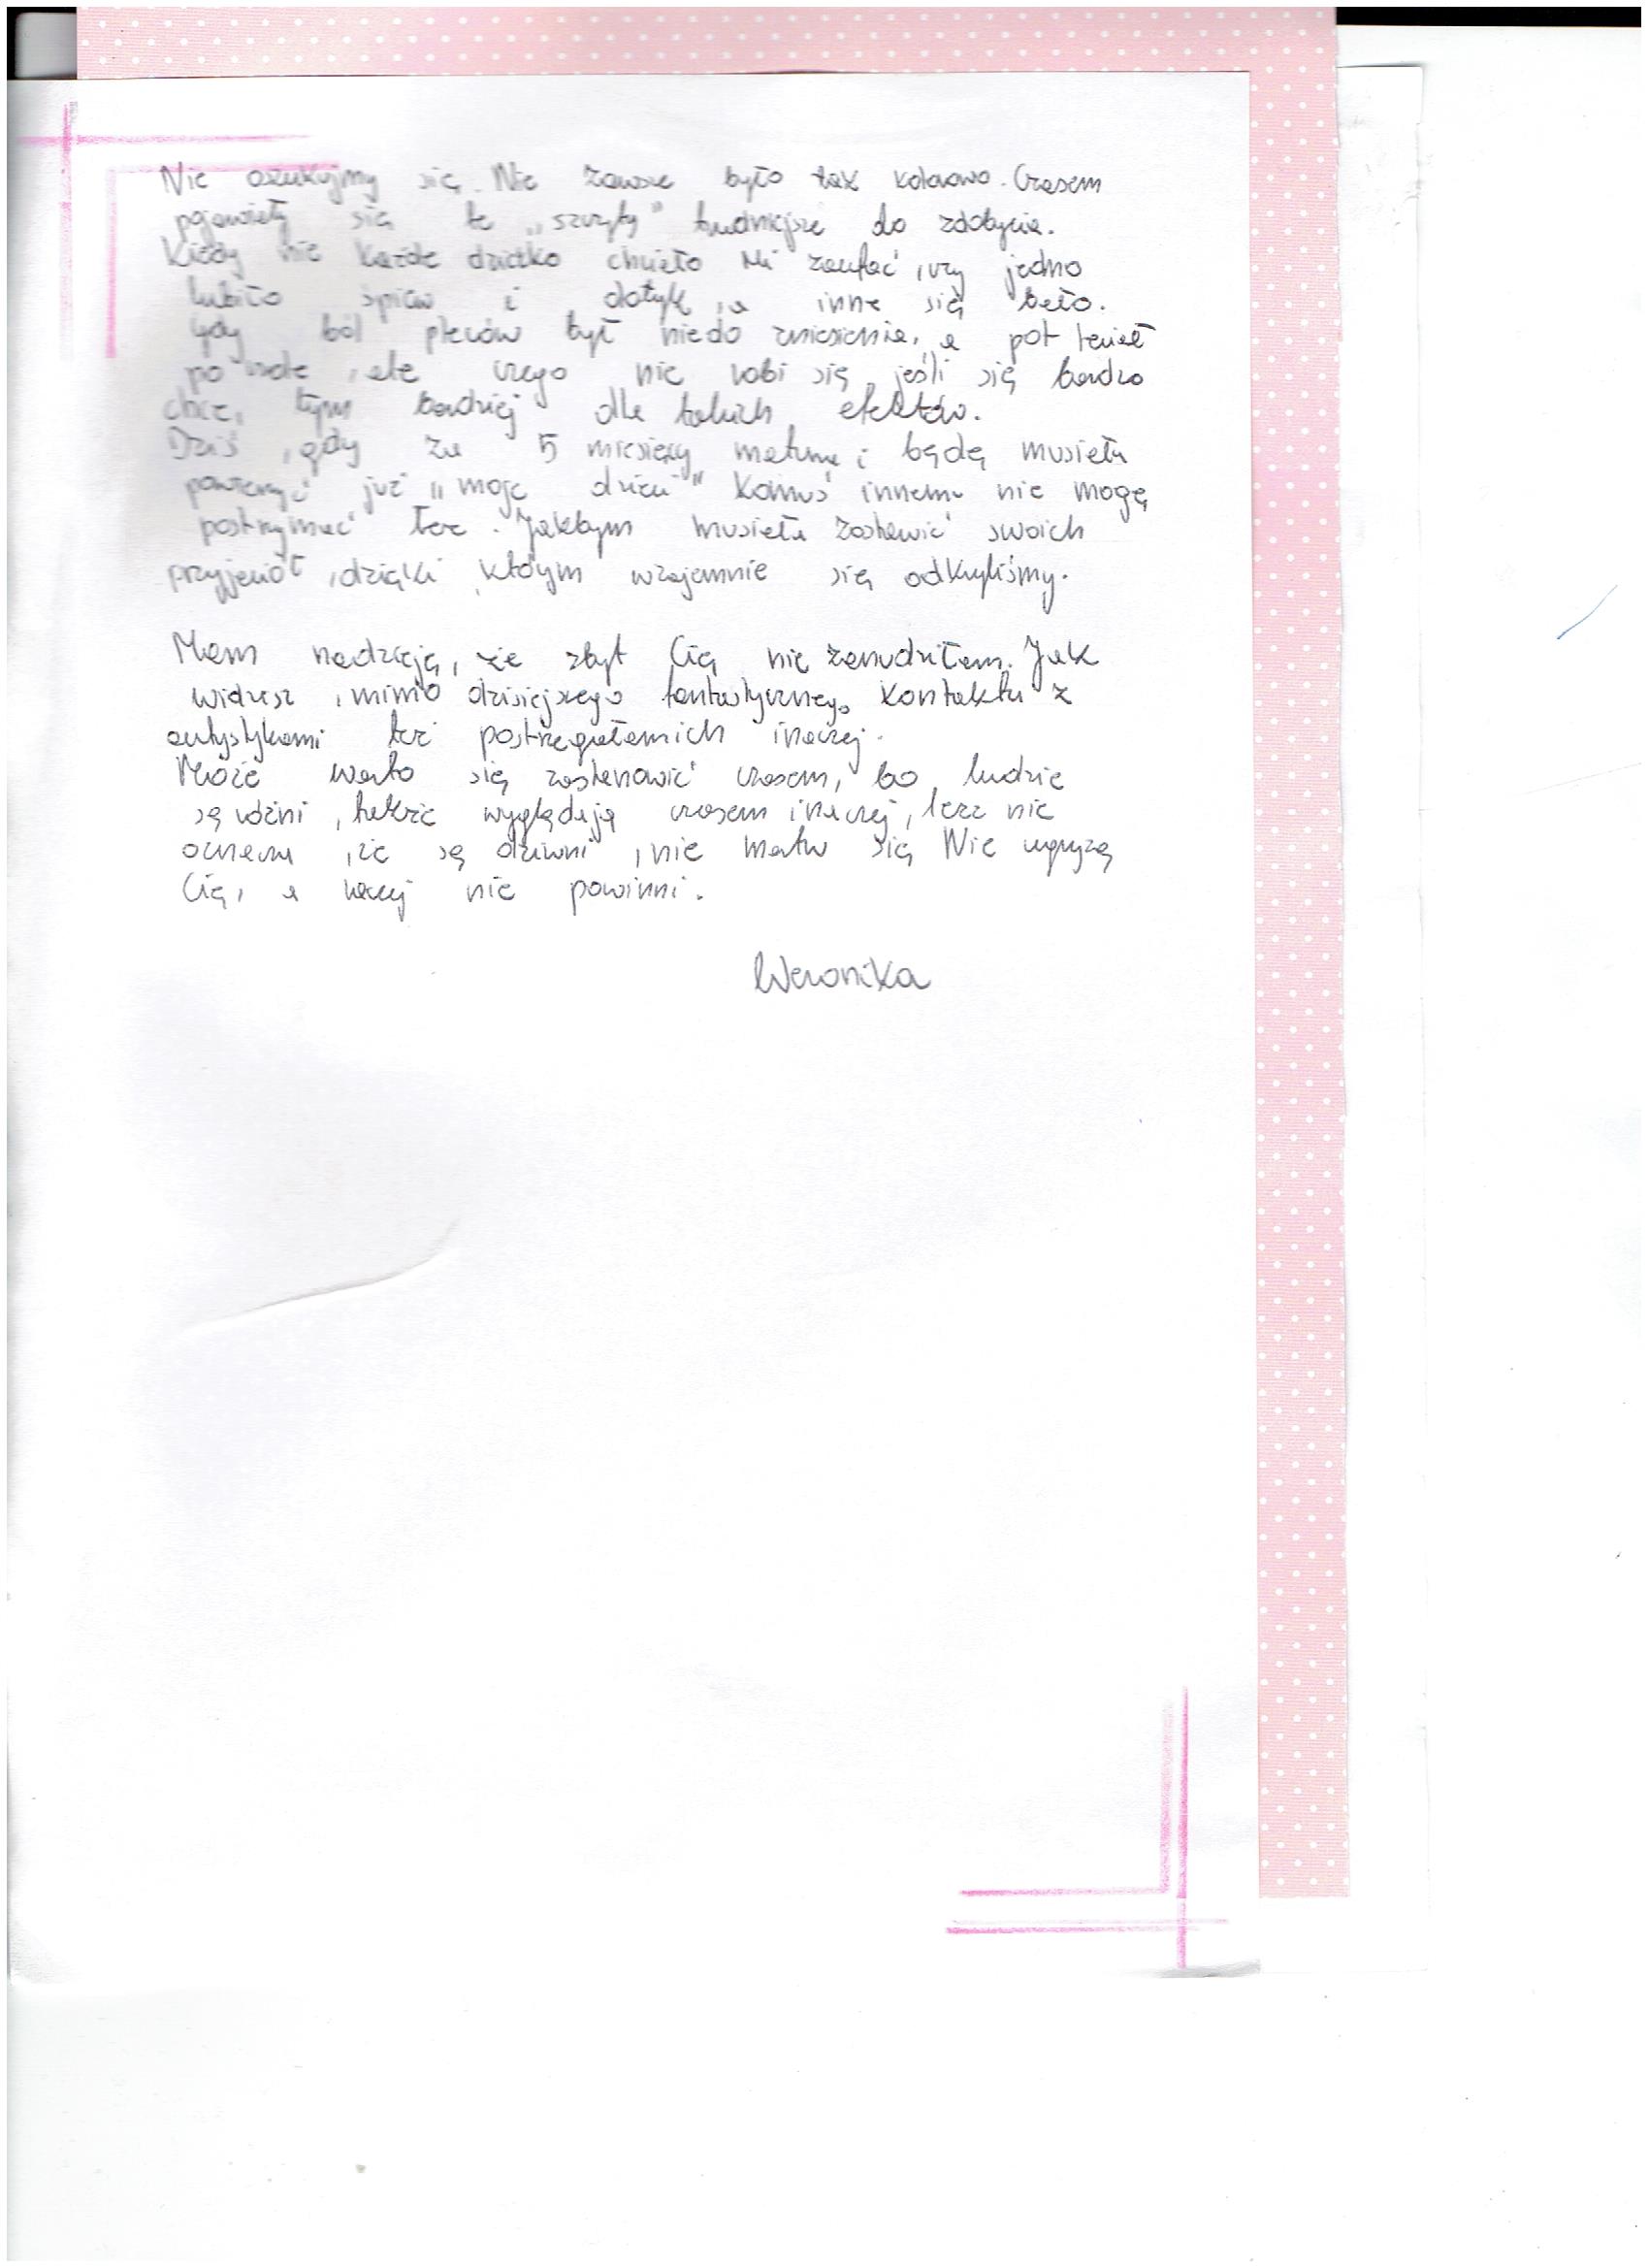 Nie oszukujmy się. Nie zawsze było tak kolorowo. Czasem
pojawiały się te „szczyty" trudniejsze do zdobycia.
Kiedy nie każde dziecko chciało mi zaufać, czy jedno
lubiło śpiew i dotyk, a inne się bało.
Gdy ból pleców był niedo zniesienia, a pot
po, ale czego nie robi się jeśli się bardzo
chce, tym bardziej dla takich efektów.
Dziś, gdy za 5 miesięcy matura i będę musiała
powierzyć już „moje dzieci" komuś innemu nie mogę
postrzymać łez. Jakbym musiała zostawić swoich
przyjaciół, dzięki, którym wzajemnie się odkryliśmy.
Mam nadzieję, że zbyt Cię nie zanudziłam. Jak
widzisz, mimo dzisiejszego fantastycznego kontaktu z
autystykami też postrzegałamich inaczej.
Może warto się zastanowić czasem, bo ludzie
są różni, także wyglądają czasem inaczej, lecz nie
oznacza, że są dziwni, nie martw się Nie ugryzą
Cię, a raczej nie powinni.
Weronika